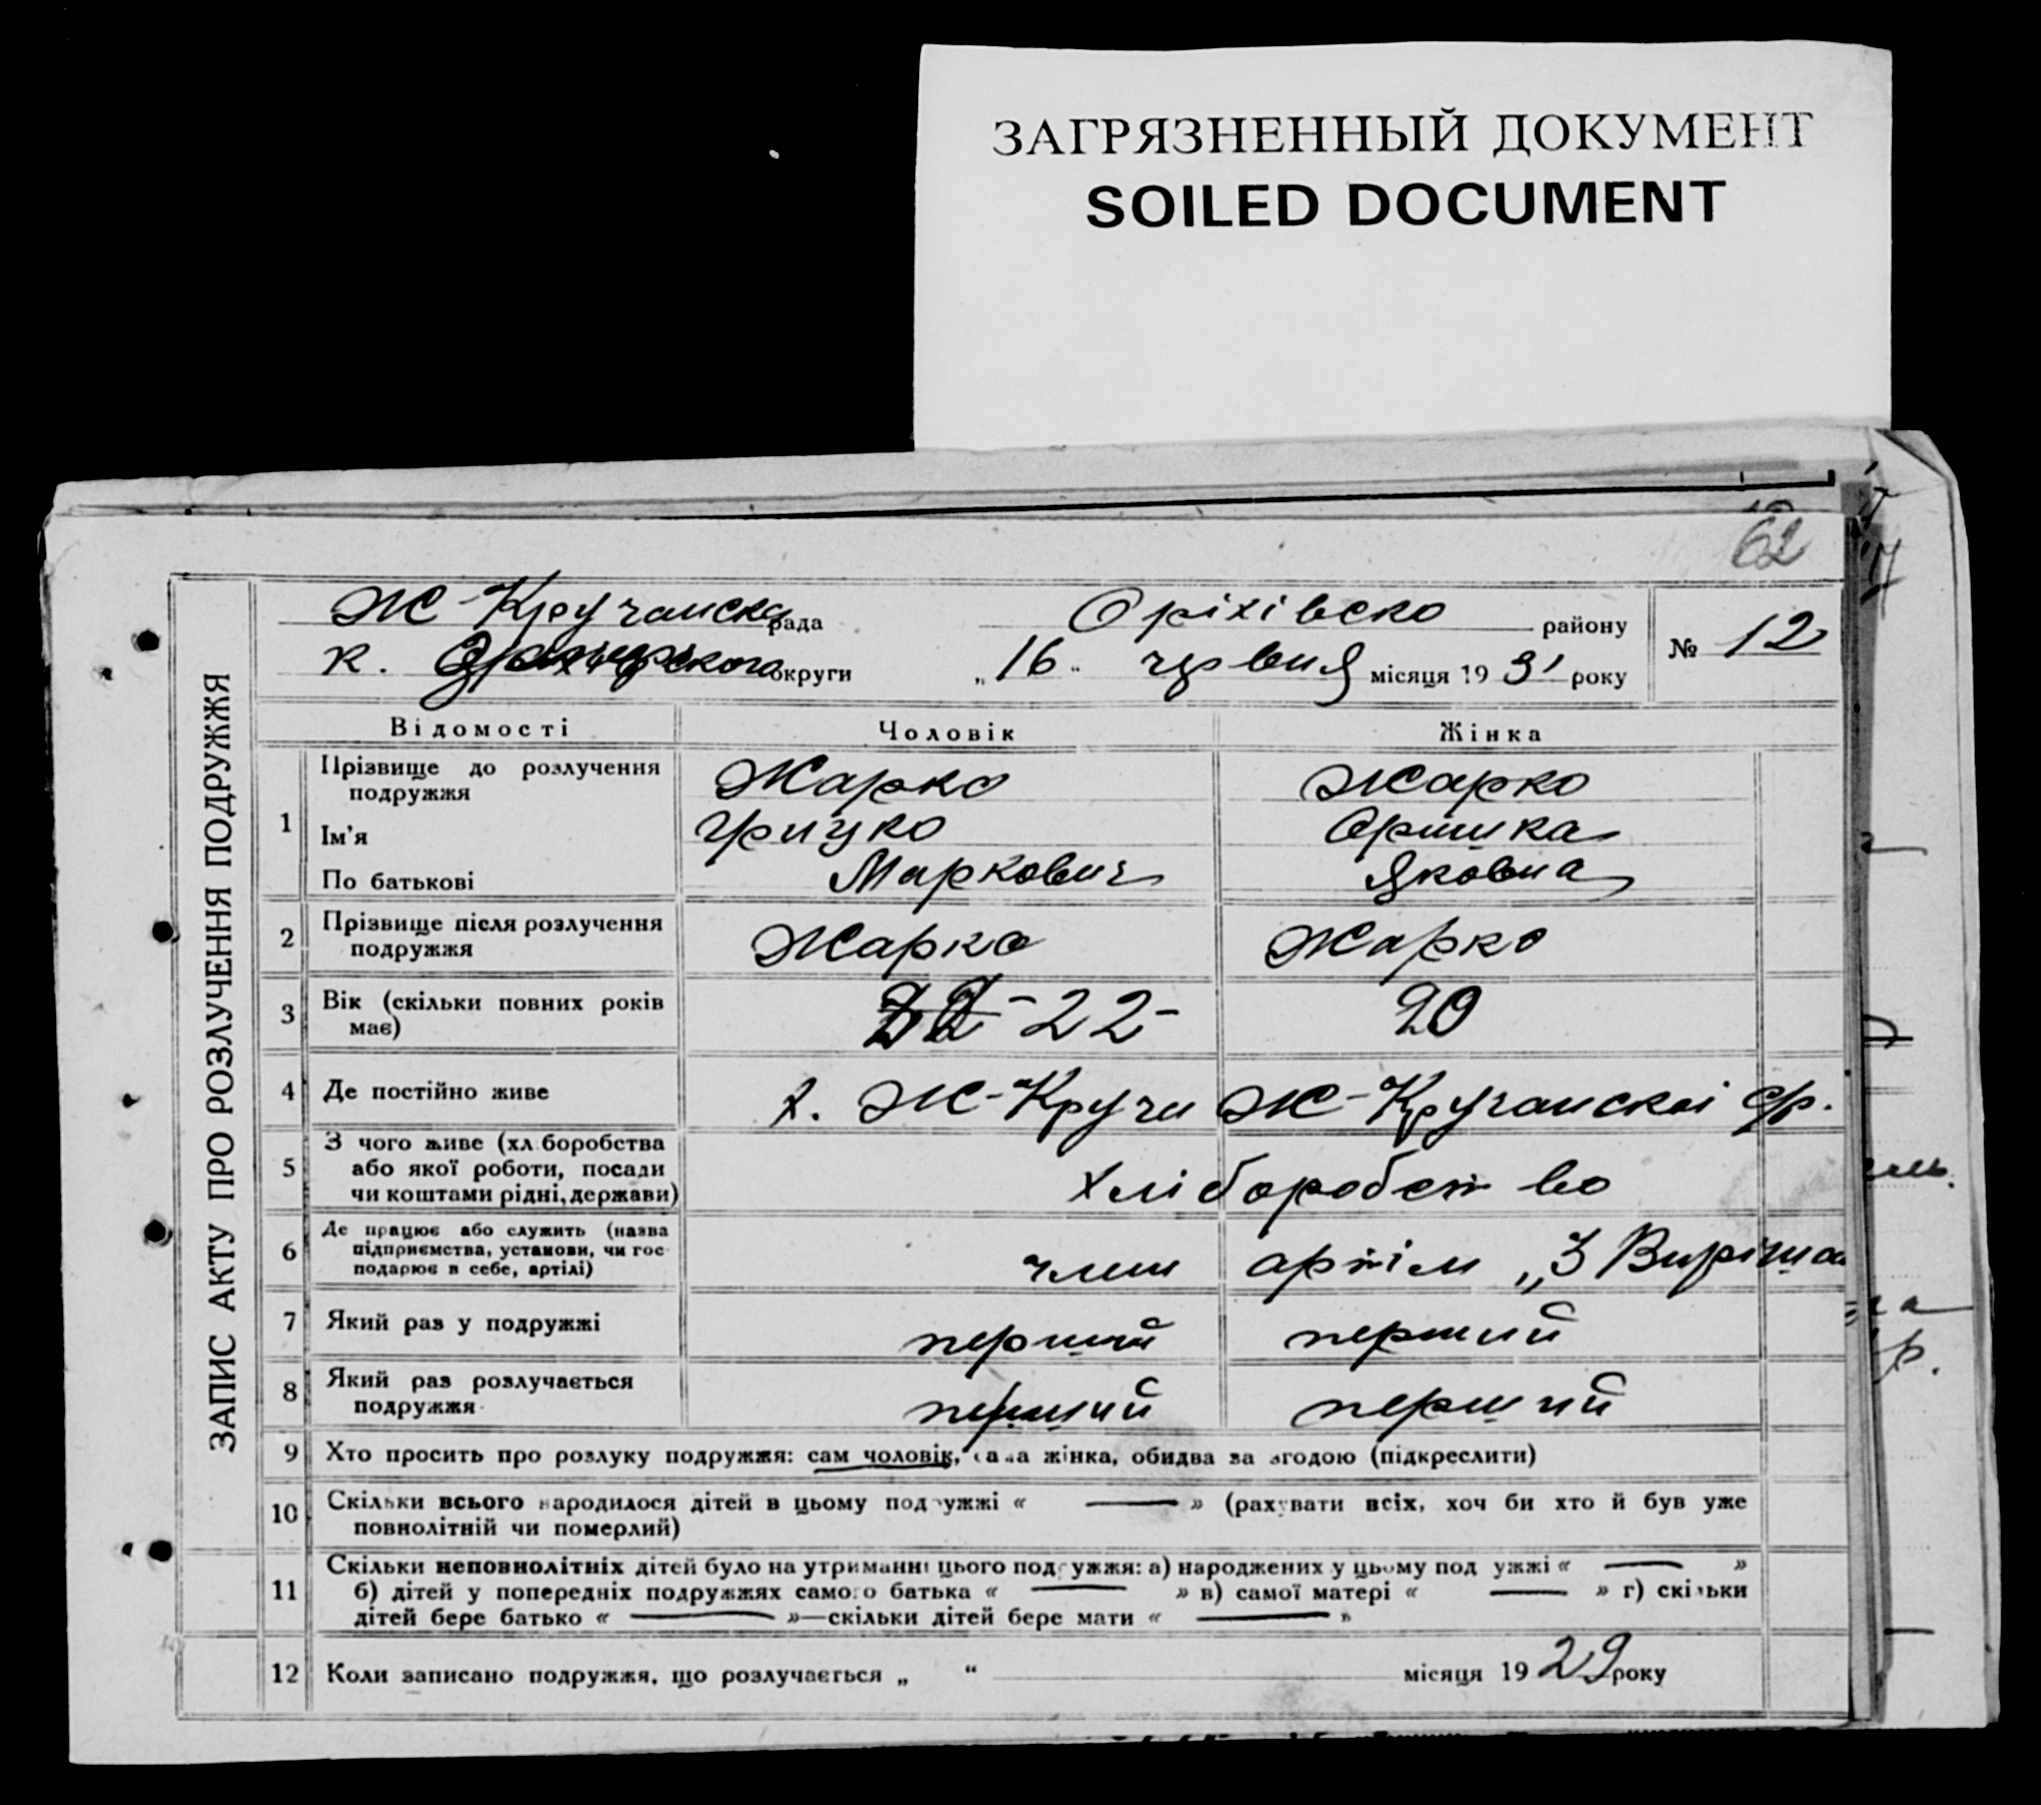 ЗАГРЯЗНЕННЫЙ ДОКУМЕНТ
SOILED DOCUMENT
62
ЗАПИС АКТУ ПРО РОЗЛУЧЕННЯ ПОДРУЖЖЯ
Ж-Кручанска рада Оріхівско району
№ 12
к. округи „16" червня місяця 1931 року
Відомості Чоловік Жінка
1 Прізвище до розлучення подружжя Жарко Жарко
Ім'я Грицко Оришка
По батькові Маркович Яковна
2 Прізвище після розлучення
подружжя Жарко Жарко
3 Вік (скільки повних років
має) 22 - 22 - 20
4 Де постійно живе х. Ж-Кручи Ж-Кручанскоі с/р.
5 З чого живе (хл боробства
або якої роботи, посади
чи коштами рідні, держави) хліборобство
6 Де працює або служить (назва
підприємства, установи, чи гос-
подарює в себе, артілі) член артіли „З
7 Який раз у подружжі перший перший
8 Який раз розлучається
подружжя перший перший
9 Хто просить про розлуку подружжя: сам чоловік, сама жінка, обидва за згодою (підкреслити)
10 Скільки всього народилося дітей в цьому подружжі « — » (рахувати всіх, хоч би хто й був уже
повнолітній чи померлий)
11 Скільки неповнолітніх дітей було на утриманні цього подружжя: а) народжених у цьому подружжі « — »
б) дітей у попередніх подружжях самого батька « — » в) самої матері « — » г) скільки
дітей бере батько « — »—скільки дітей бере мати « — »
12 Коли записано подружжя, що розлучається „ “ місяця 1929 року